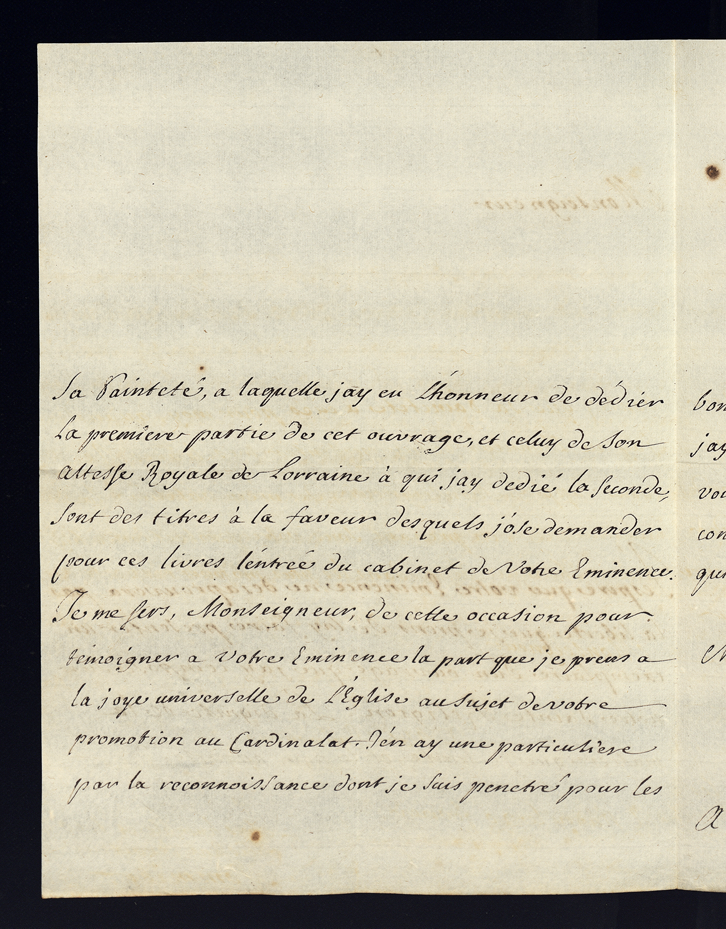 Sa Sainteté, a laquelle jay eu L'honneur de dédier
La premiere partie de cet ouvrage, et celuy de Son
Altesse Royale de Lorraine à qui jay dedié la seconde,
sont des titres à la faveur desquels j'ose demander
pour ces livres l'éntreé du cabinet de Votre Eminence.
Je me sers, Monseigneur, de cette occasion pour
témoigner a Votre Eminence la part que je prens a
la joye universelle de L'Église au sujet de votre
promotion au Cardinalat. J'én ay une particuliere
par la reconnoissance dont je suis penetré pour les
bon
jay
vou
con
qui
A